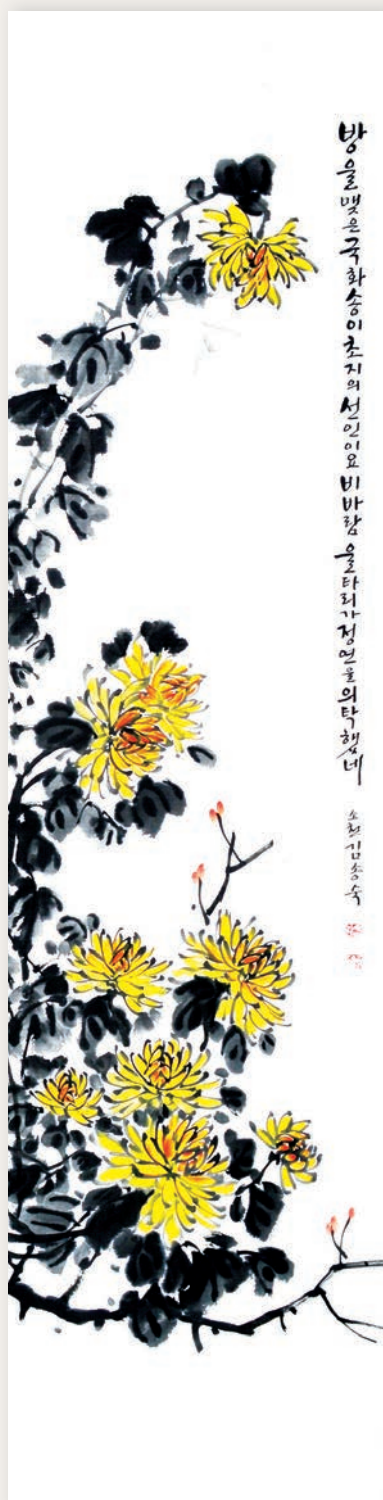 방울맺은국화송이초지의선인이요비바람울타리가정연을의탁했네
소헌김송숙